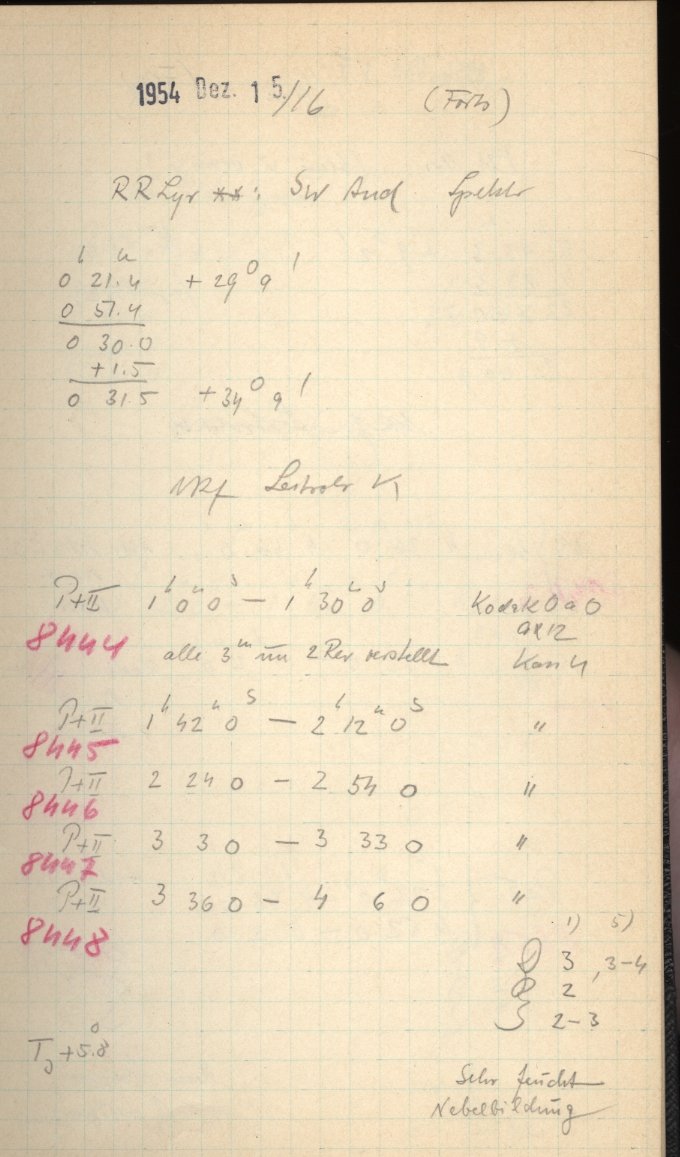 1954 Dez. 15./16 (Forts)
RR Lyr **: SW And Spektr
h m
0 21.4 + 29° 9'
0 51.4
0 30.0
+1.5
0 31.5 + 34° 9'
Leitrohr
P+II 1h 0m 0s — 1h 30m 0s Kodak OaO
8444 9x12
alle 3m um 2 Rev verstellt Kass 4
P+II 1h 42m 0s — 2h 12m 0s "
8445
P+II 2 24 0 — 2 54 0 "
8446
P+II 3 3 0 — 3 33 0 "
8447
P+II 3 36 0 — 4 6 0 "
8448
1) 5)
D 3, 3-4
2
2-3
TJ +5.8°
Sehr feucht
Nebelbildung